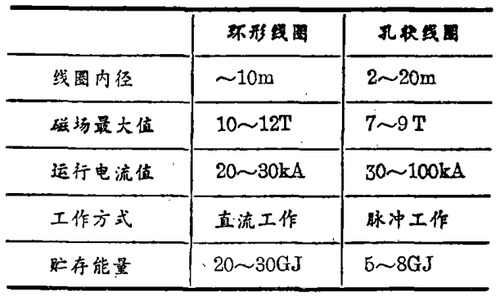 环形线圈 孔状线圈
线圈内径 ～10m 2～20m
磁场最大值 10～12T 7～9T
运行电流值 20～30kA 30～100kA
工作方式 直流工作 脉冲工作
贮存能量 20～30GJ 5～8GJ